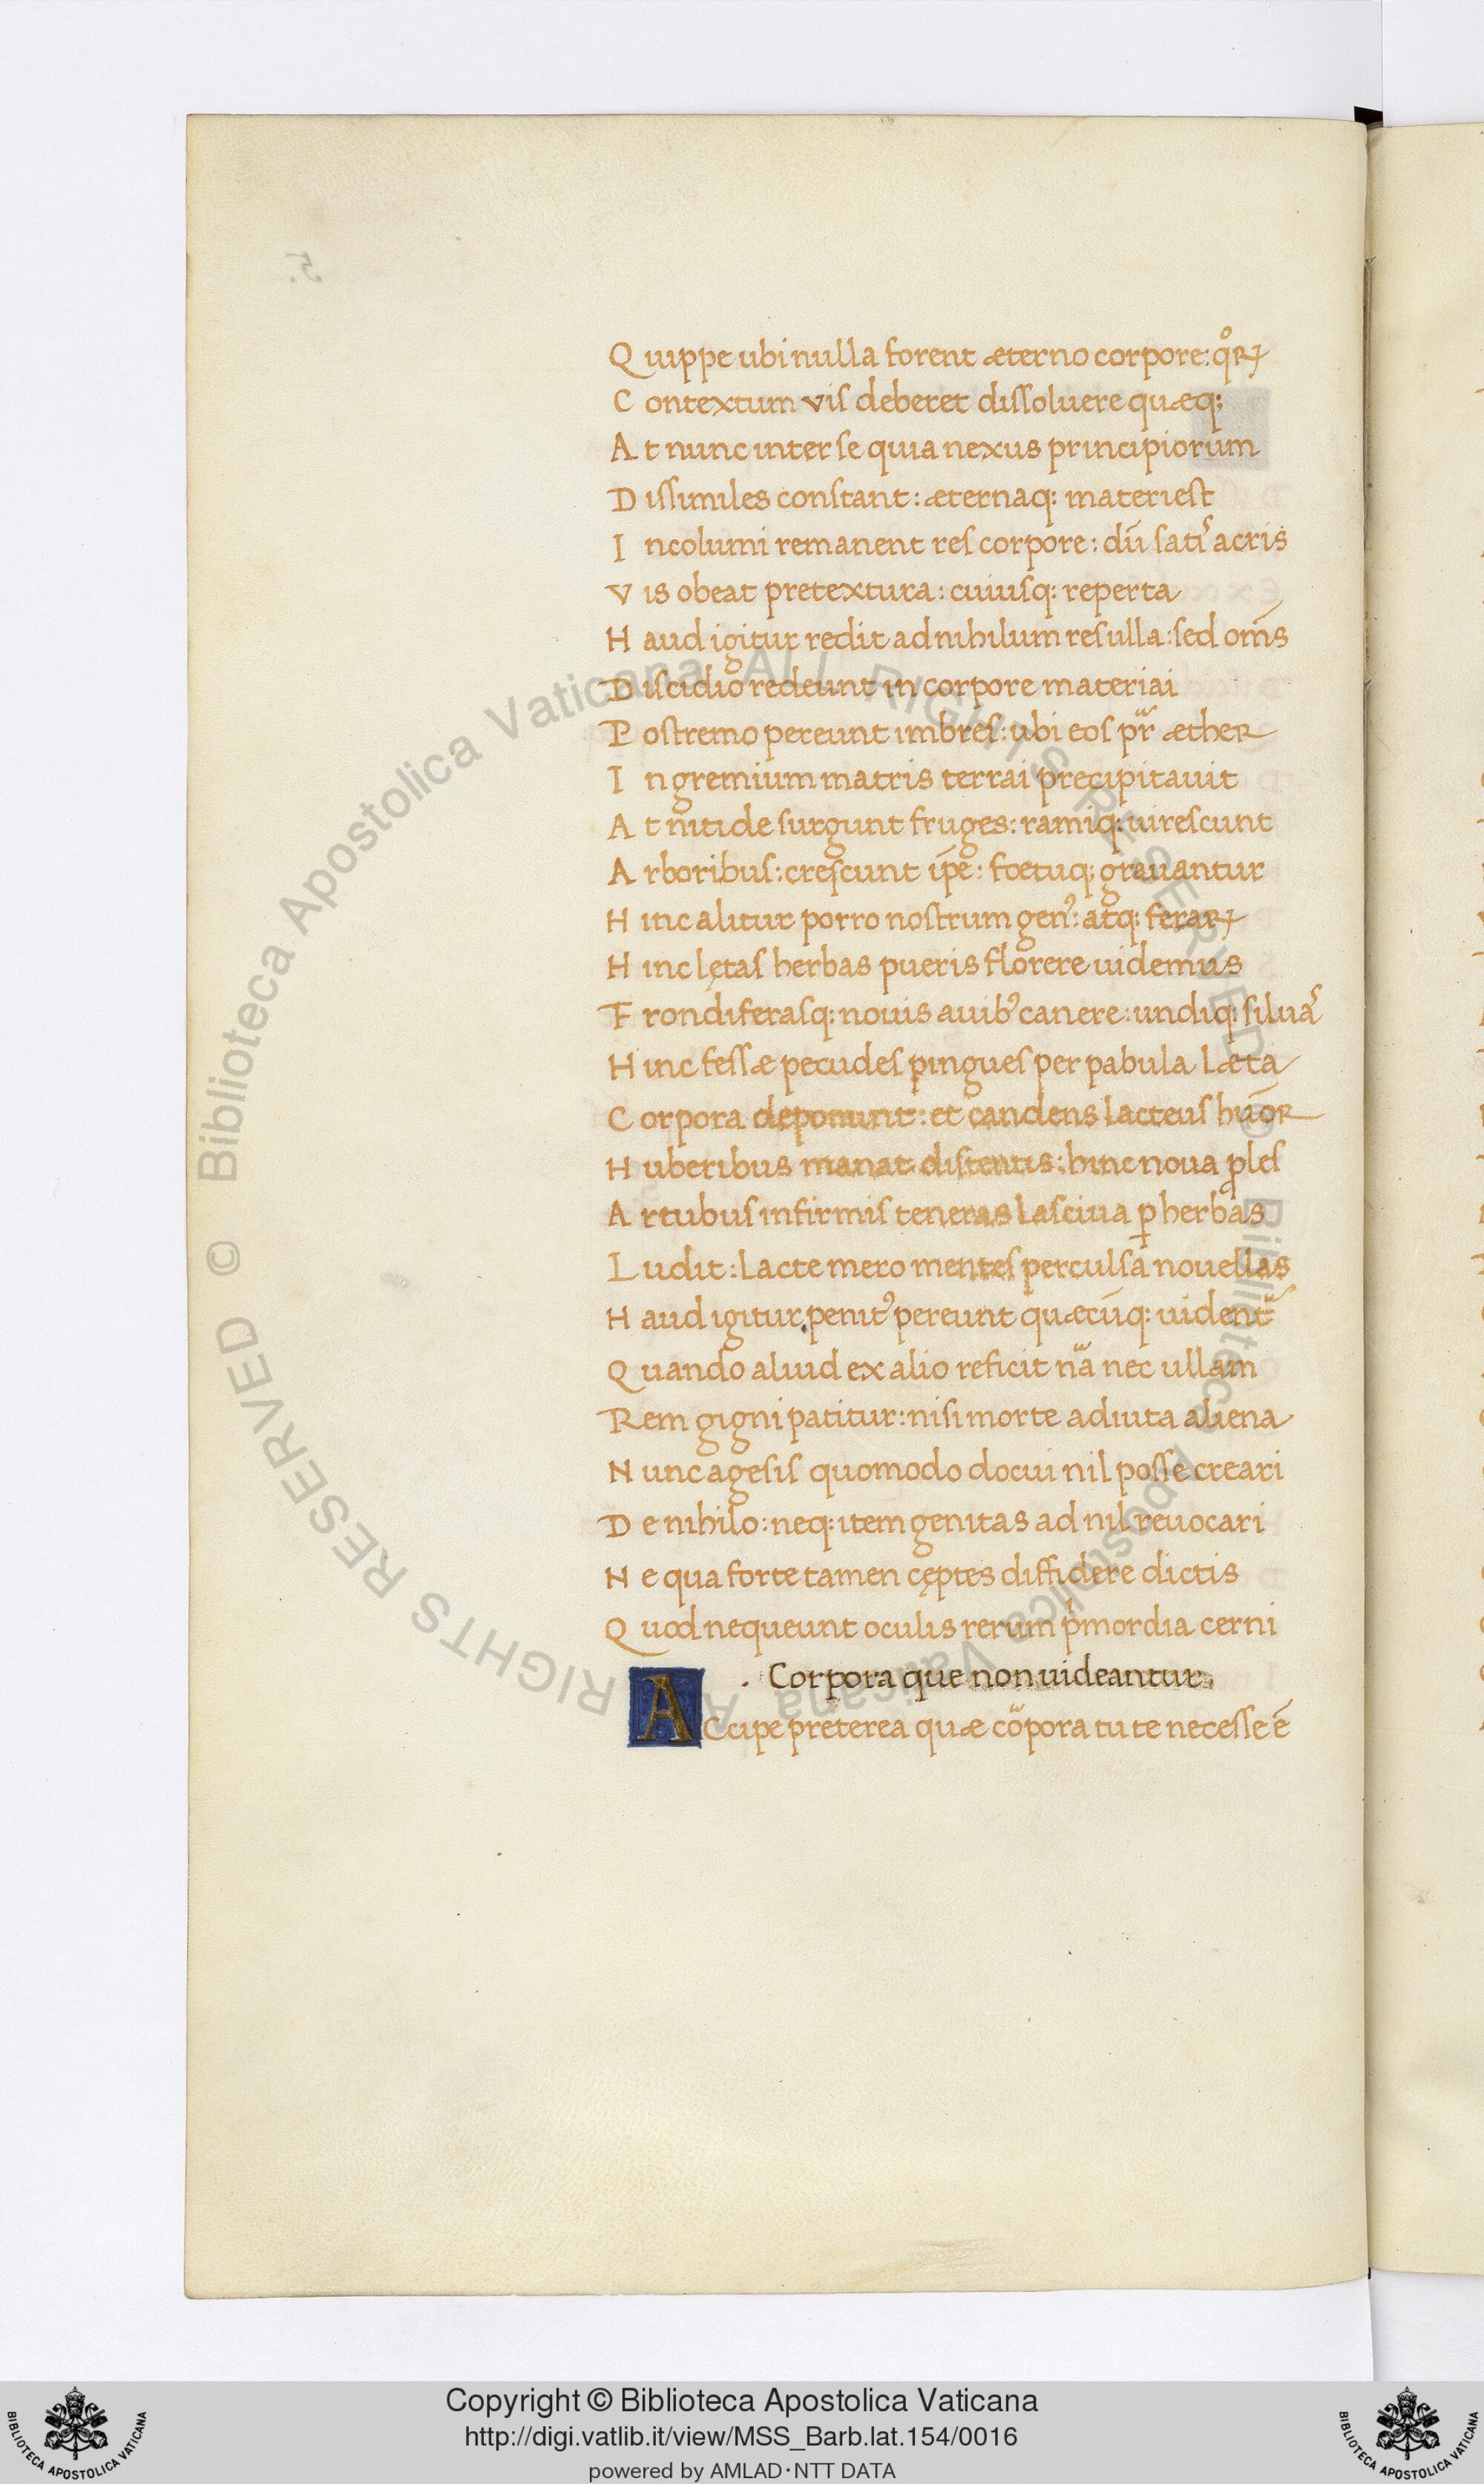 Quippe ubi nulla forent æterno corpore: qͦꝝ
Contextum vis deberet dissoluere quæq;
At nunc inter se quia nexus principiorum
Dissimiles constant: æternaq: materiest
Incolumi remanent res corpore: dū satis acris
Vis obeat pretextura: cuiusq: reperta
Haud igitur redit ad nihilum res ulla: sed om̄s
Discidio redeunt in corpore materiai
Postremo pereunt imbres: ubi eos pr̄ æther
In gremium matris terrai precipitauit
At nitide surgunt fruges: ramiq: uirescunt
Arboribus: crescunt ip̄e: foetuq; grauantur
Hinc alitur porro nostrum genꝰ: atq: feraꝝ
Hinc lętas herbas pueris florere uidemus
Frondiferasq: nouis auibꝰ canere: undiq: siluas
Hinc fessæ pecudes pingues per pabula læta
Corpora deponunt: et candens lacteus hūor
Huberibus manat distentis: hinc noua ꝓles
Artubus infirmis teneras lasciua ꝑ herbas
Ludit: lacte mero mentes perculsa nouellas
Haud igitur penitꝰ pereunt quæcūq: uident᷑
Quando aliud ex alio reficit nā nec ullam
Rem gigni patitur: nisi morte adiuta aliena
Nunc age sis quomodo docui nil posse creari
De nihilo: neq: item genitas ad nil reuocari
Ne qua forte tamen cęptes diffidere dictis
Quod nequeunt oculis rerum pͥmordia cerni
. Corpora que non uideantur.
ACcipe preterea quæ cōpora tu te necesse ē
5.
© Biblioteca Apostolica Vaticana ALL RIGHTS RESERVED © Biblioteca Apostolica Vaticana ALL RIGHTS RESERVED
BIBLIOTECA APOSTOLICA VATICANA
Copyright © Biblioteca Apostolica Vaticana
http://digi.vatlib.it/view/MSS_Barb.lat.154/0016
powered by AMLAD·NTT DATA
BIBLIOTECA APOSTOLICA VATICANA